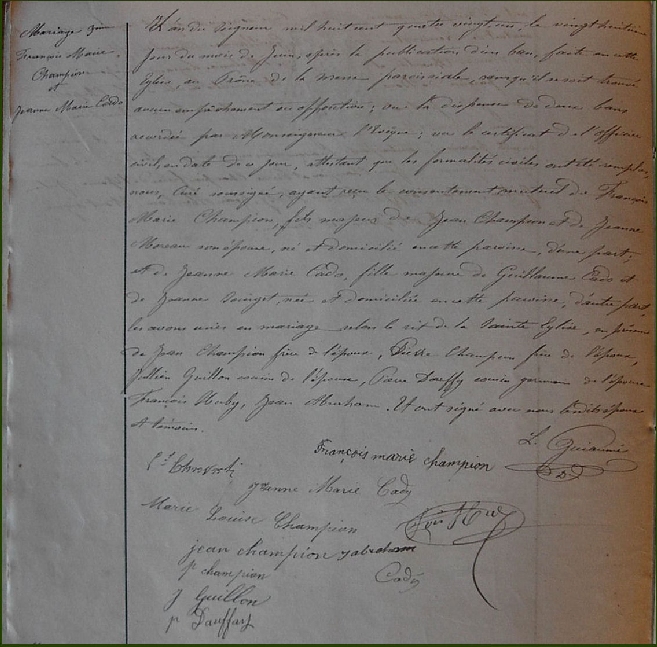 Mariage
François Marie
Champion
et
Jeanne Marie Cado
L'an du Seigneur mil huit cent quatre vingt le vingt huitième
jour du mois de Juin, après la publication d'un ban, faite en cette
Eglise, au Prône de la messe paroissiale, sans qu'il se soit trouvé
aucun empêchement ou opposition ; vu la dispense de deux bans
accordée par Monseigneur l'Evêque ; vu le certificat de l'officier
civil en date de ce jour, attestant que les formalités civiles ont été remplies,
nous, curé soussigné, ayant reçu le consentement mutuel de François
Marie Champion, fils majeur de Jean Champion et de Jeanne
Moreau son épouse, né et domicilié en cette paroisse, d'une part,
et de Jeanne Marie Cado, fille majeure de Guillaume Cado et
de Jeanne née et domiciliée en cette paroisse, d'autre part,
les avons unis en mariage selon le rit de la Sainte Eglise, en présence
de Jean Champion frère de l'époux, Champion frère de l'époux,
Julien Guillon cousin de l'époux, cousin germain de l'épouse
François Jean Abraham. Et ont signé avec nous
et témoins.
François marie champion
Jeanne Marie Cado
Marie Louise Champion
jean champion j abraham
p champion Cado
j Guillon
p Dauffy